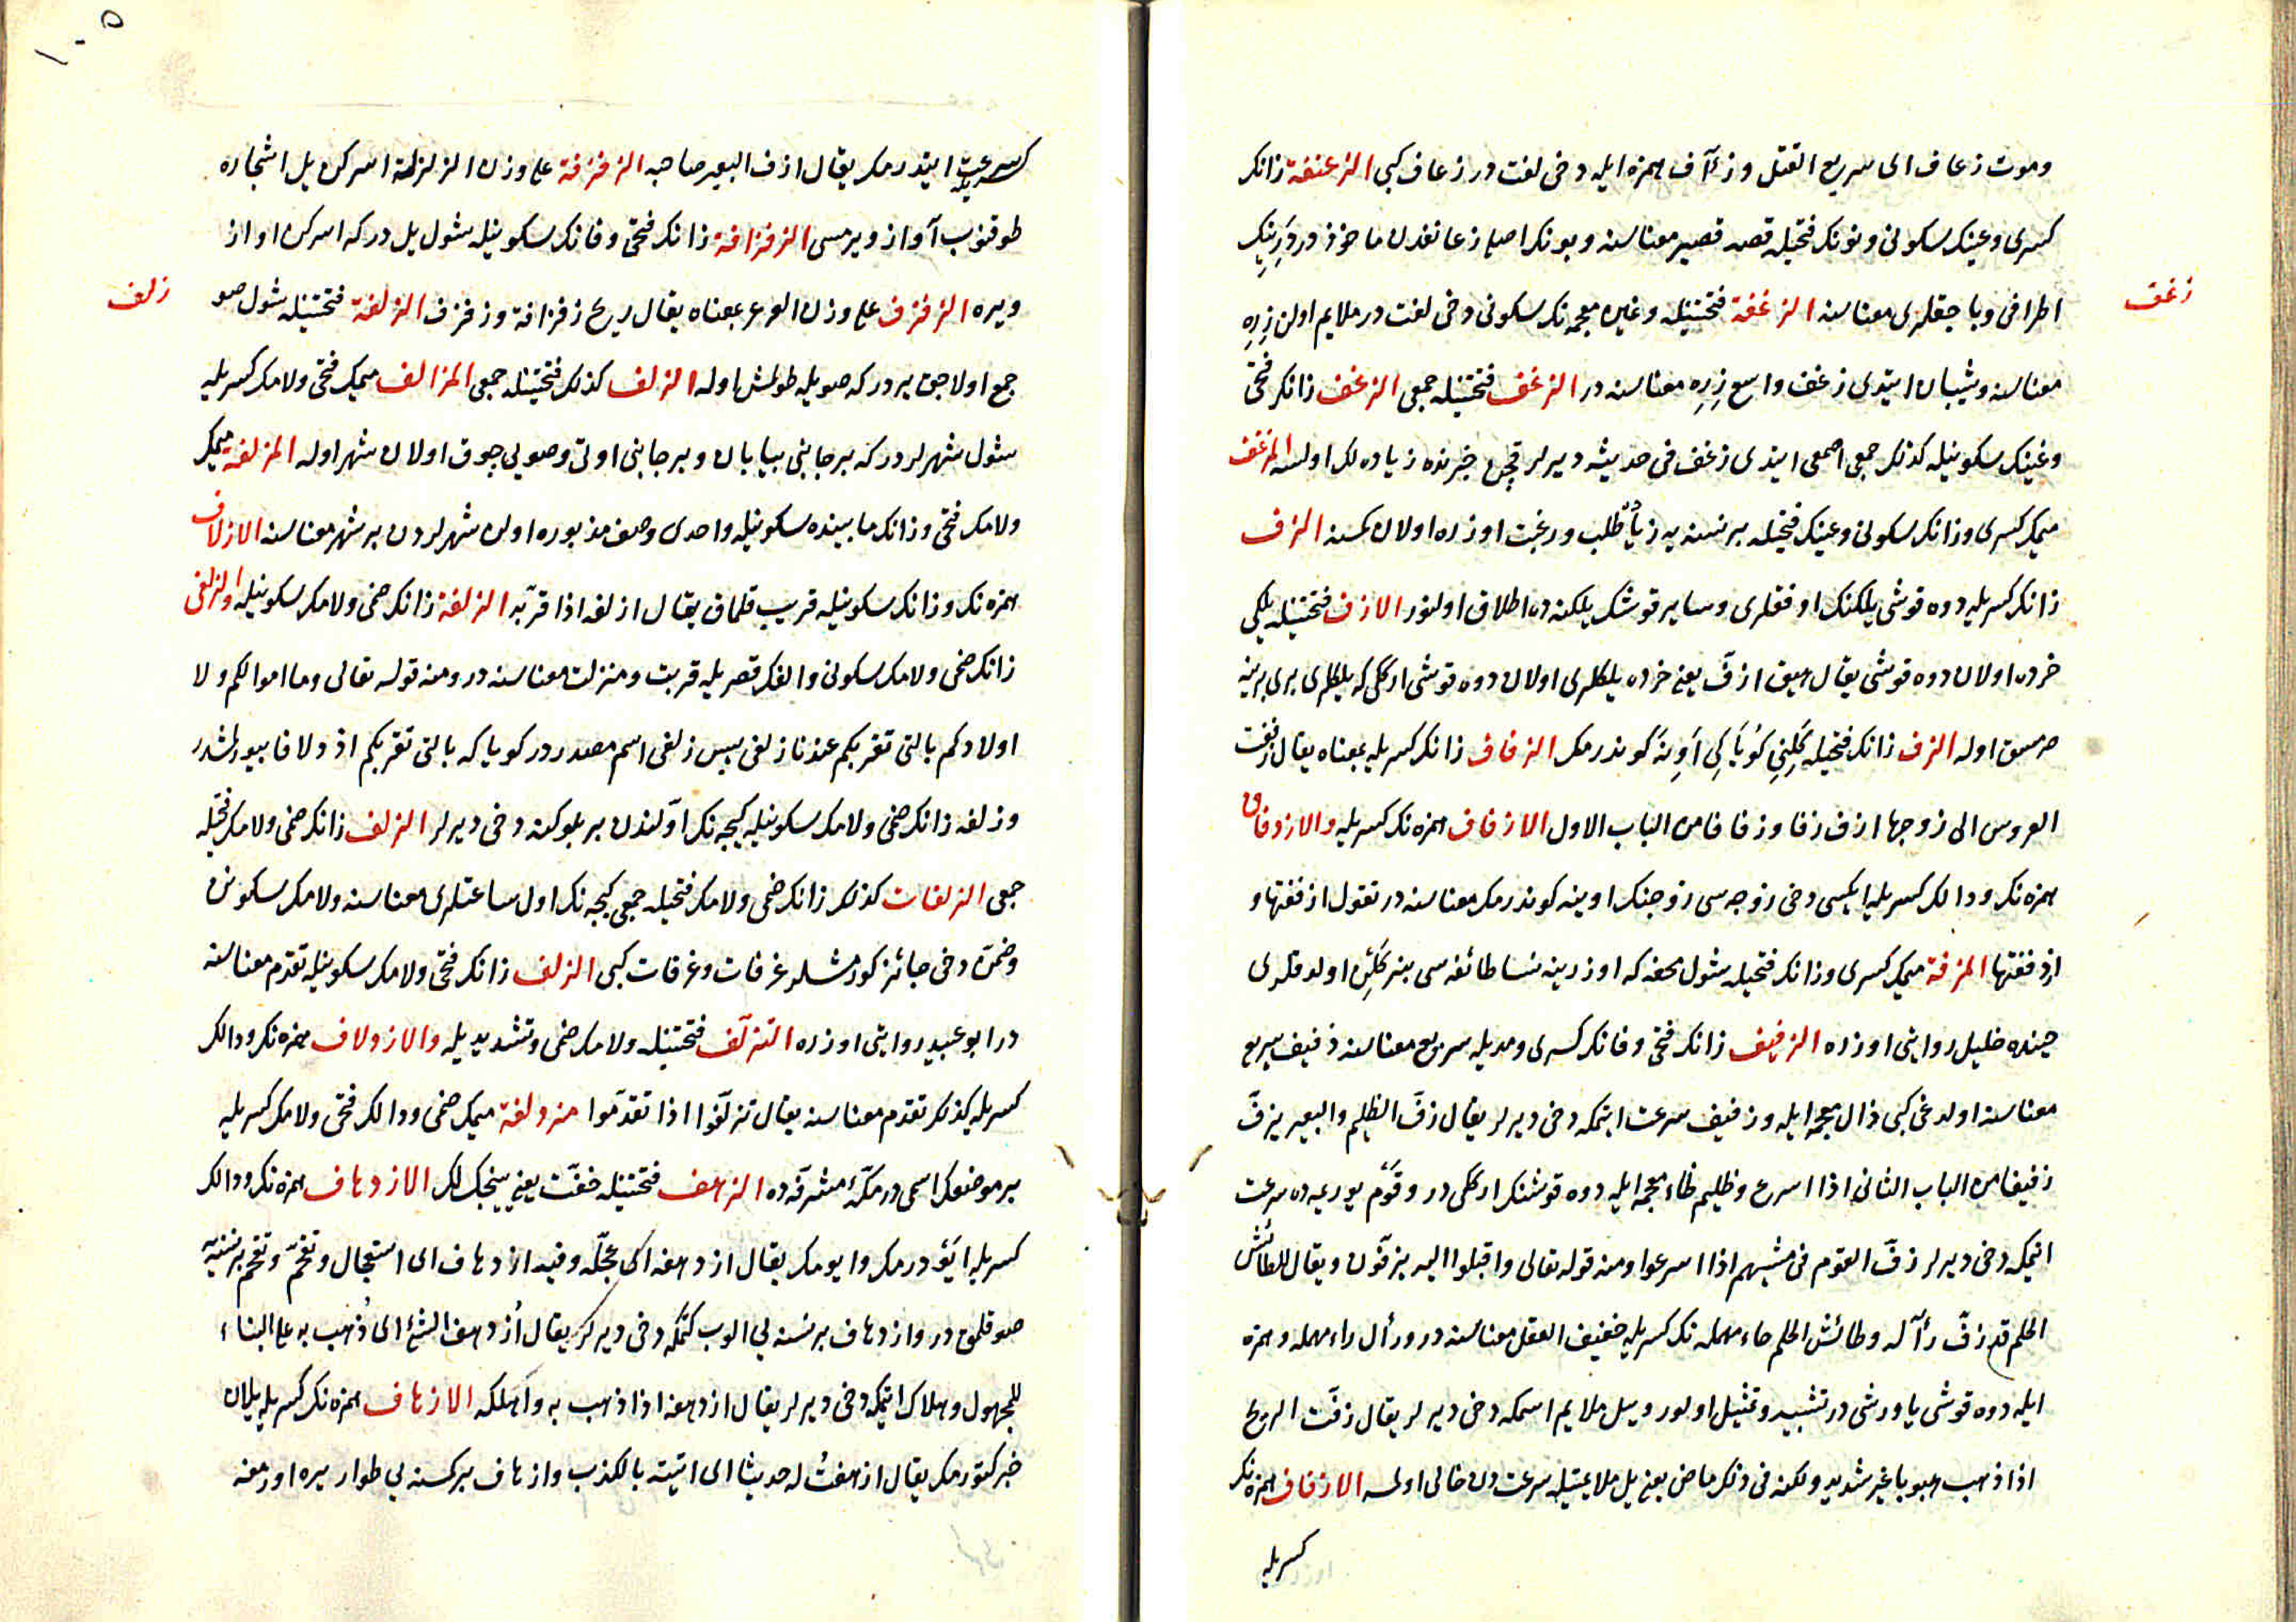 وموت زعاف ای سریع القتل وزآف همزه ایله دخی لغت در زعاف کبی الزعنفة زانک
کسری وعینک سکونی ونونک فتحیله قصه قصیر معناسنه وبونک اصلی زعانفدن ماخوذدر
اطرافی معناسنه الزغفة فتحتینله وغین معجمه نک سکونی دخی لغت در ملایم اولن زره
زغف
معناسنه وشیبان ایتدی زغف واسع زره معناسنه در الزغف فتحتینله جمعی الزغف زانک فتحی
وغینک سکونیله کذلک جمعی اصمعی ایتدی زغف فی حدیثه دیرلر قچن خبرنده زیاده لک اولسه المزغف
میمک کسری وزانک سکونی وعینک فتحیله بر نسنه یه طلب ورغبت اوزره اولان کسنه الزف
زانک کسریله دوه قوشی یلکنک اوفقلری وسایر قوشک یلکنه ده اطلاق اولنور الازف فتحتینله یلکی
خرده اولان دوه قوشی یقال هیق ازف یعنی خرده یلکلری اولان دوه قوشی ارککی که یلکلری بری برینه
صرمسق اوله الزف زانک فتحیله کلینی کویاکی اوینه کوندرمک الزفاف زانک کسریله بمعناه یقال زففت
العروس الی زوجها ازف زفا وزفافا من الباب الاول الازفاف همزه نک کسریله والازدفاف
همزه نک ودالک کسریله ایکسی دخی زوجه سی زوجنک اوینه کوندرمک معناسنه در تقول ازففتها و
ازدففتها المزفة میمک کسری وزانک فتحیله شول محفه که اوزرینه نسا طائفه سی بنر کلین اولدقلری
حینده خلیل روایتی اوزره الزفیف زانک فتحی وفانک کسری ومدیله سریع معناسنه ذفیف سریع
معناسنه اولدغی کبی ذال معجمه ایله وزفیف سرعت ایتمکه دخی دیرلر یقال زف الظلیم والبعیر یزف
زفیفا من الباب الثانی اذا اسرع وظلیم ظاء معجمه ایله دوه قوشنک ارککی در وقوم یوریمه ده سرعت
ایتمکه دخی دیرلر زف القوم فی مشیهم اذا اسرعوا ومنه قوله تعالی واقبلوا الیه یزفون ویقال للطائش
الحلم قد زف رأله وطائش الحلم حاء مهمله نک کسریله خفیف العقل معناسنه در ورأل راء مهمله وهمزه
ایله دوه قوشی یاوروشی در تشبیه وتمثیل اولور ویل ملایم اسمکه دخی دیرلر یقال زفت الریح
اذا ذهب هبوبا غیر شدید ولکنه فی ذلک ماض یعنی یل ملایمتیله سرعت دن خالی اولمه الازفاف همزه نک
کسریله
١٠٥
کسریله سرعت ایتدرمک یقال ازف البعیر صاحبه الزفزفة علی وزن الزلزلة اسرکن یل اشجاره
طوقنوب آواز ویرمسی الزفزافة زانک فتحی وفانک سکونیله شول یل درکه اسرکن اواز
ویره الزفزف علی وزن العرعر بمعناه یقال ریح زفزافة وزفزف الزلفة فتحتینله شول صو
زلف
جمع اولاجق یردرکه صویله طولمش اوله الزلف کذلک فتحتینله جمعی المزالف میمک فتحی ولامک کسریله
شول شهرلردرکه بر جانبی بیابان وبر جانبی اوتی وصویی چوق اولان شهر اوله المزلفة میمک
ولامک فتحی وزانک مابینده سکونیله واحدی وصف مذبوره اولن شهرلردن بر شهر معناسنه الازلاف
همزه نک وزانک سکونیله قریب قلمق یقال ازلفه اذا قربه الزلفة زانک ضمی ولامک سکونیله والزلفی
زانک ضمی ولامک سکونی والفک قصریله قربت ومنزلت معناسنه در ومنه قوله تعالی وما اموالکم ولا
اولادکم بالتی تقربکم عندنا زلفی پس زلفی اسم مصدردر کویا که بالتی تقربکم ازدلافا بیورلمشدر
وزلفه زانک ضمی ولامک سکونیله کیجه نک اولندن بر بلوکنه دخی دیرلر الزلف زانک ضمی ولامک فتحیله
جمعی الزلفات کذلک زانک ضمی ولامک فتحیله جمعی کیجه نک اول ساعتلری معناسنه ولامک سکونی
وضمی دخی جائز کورلمشدر غرفات وغرفات کبی الزلف زانک فتحی ولامک سکونیله تقدم معناسنه
در ابو عبید روایتی اوزره التزلف فتحتینله ولامک ضمی وتشدیدیله والازدلاف همزه نک ودالک
کسریله کذلک تقدم معناسنه یقال تزلفوا اذا تقدموا مزدلفة میمک ضمی ودالک فتحی ولامک کسریله
بر موضعک اسمی در مکه مشرفه ده الزهف فتحتینله خفت یعنی یینجکلک الازدهاف همزه نک ودالک
کسریله ایودرمک وایومک یقال ازدهفه ای عجله وفیه ازدهاف ای استعجال وتقحم وتقحم بر نسنیه
صوقلمق در وازدهاف بر نسنه یی الوب کتمکه دخی دیرلر یقال ازدهف الشئ ای ذهب به علی البناء
للمجهول وهلاک ایتمکه دخی دیرلر یقال ازدهفه اذا ذهب به واهلکه الازهاف همزه نک کسریله یلان
خبر کتورمک یقال ازهفت له حدیثا ای اتیته بالکذب وازهاف بر کسنه یی طوار یره اورمغه